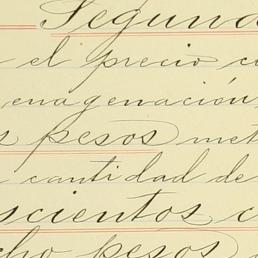 Segund
el precio
enagenación
s pesos met
cantidad de
scientos c
cho pesos